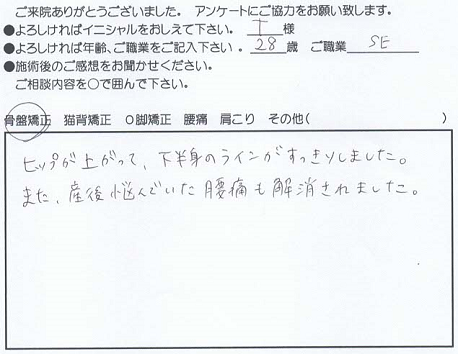 ご来院ありがとうございました。 アンケートにご協力をお願い致します。
●よろしければイニシャルをおしえて下さい。 T 様
●よろしければ年齢、ご職業をご記入下さい。 28 歳 ご職業 SE
●施術後のご感想をお聞かせください。
ご相談内容を○で囲んで下さい。
骨盤矯正 猫背矯正 O脚矯正 腰痛 肩こり その他( )
ヒップが上がって、下半身のラインがすっきりしました。
また、産後悩んでいた腰痛も解消されました。